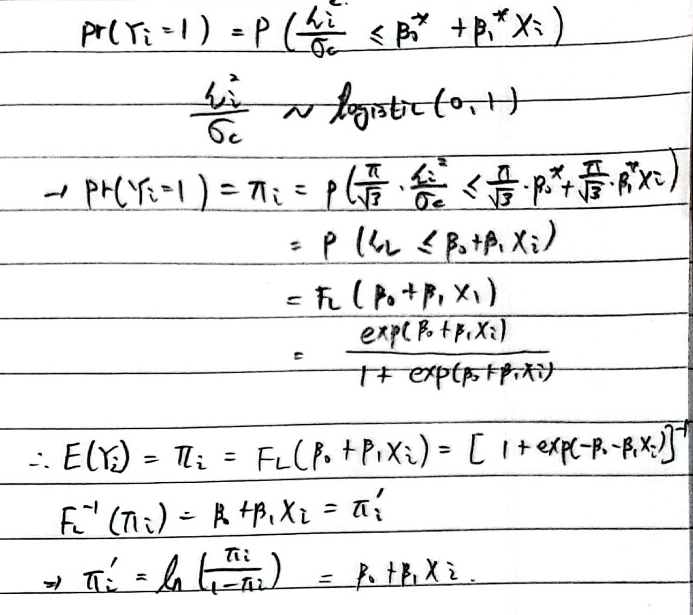 Pr(Yi=1) = P(εi²/σc ≤ β0* + β1* Xi)
εi²/σc ~ logistic(0,1)
→ Pr(Yi=1) = πi = P(π/√3 · εi²/σc ≤ π/√3 · β0* + π/√3 · β1* Xi)
= P(εL ≤ β0+β1 Xi)
= FL(β0+β1 X1)
= exp(β0+β1Xi) / 1+ exp(β0+β1Xi)
∴ E(Yi) = πi = FL(β0+β1Xi) = [1+exp(-β0-β1Xi)]⁻¹
FL⁻¹(πi) = β0+β1Xi = πi′
⇒ πi′ = ln(πi/1-πi) = β0+β1Xi.